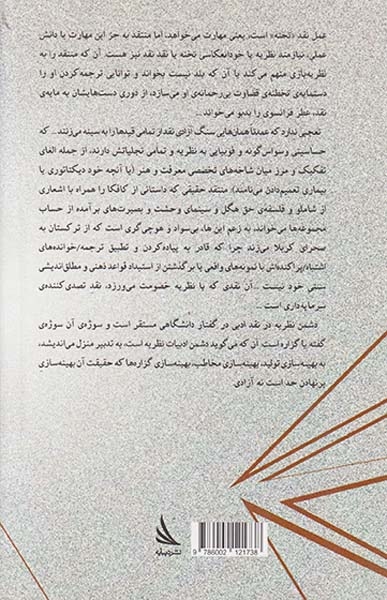 عمل نقد «تخنه» است، یعنی مهارت می‌خواهد، اما منتقد به جز این مهارت یا دانش
عملی، نیازمند نظریه یا خودانعکاسی تخنه یا نقد نقد نیز هست. آن که منتقد را به
نظریه‌بازی متهم می‌کند یا آن که بلد نیست بخواند و توانایی ترجمه‌کردن او را
دستمایه‌ی تخطئه‌ی قضاوت بی‌رحمانه‌ی او می‌سازد، از دوری دست‌هایشان به مایه‌ی
نقد، عطر فرانسوی را بدبو می‌خواند...
تعجبی ندارد که عمدتاً همان‌هایی سنگ آزادی نقد از تمامی قیدها را به سینه می‌زنند... که
حساسیتی وسواس‌گونه و فوبیایی به نظریه و تمامی تجلیاتش دارند، از جمله الغای
تفکیک و مرز میان شاخه‌های تخصصی معرفت و هنر (یا آنچه خود دیکتاتوری یا
بیماری تعمیم‌دادن می‌نامند). منتقد حقیقی که داستانی از کافکا را همراه با اشعاری
از شاملو و فلسفه‌ی حق هگل و سینمای وحشت و بصیرت‌های برآمده از حساب
مجموعه‌ها می‌خواند، به زعم این ها، بی‌سواد و هوچی‌گری است که از ترکستان به
صحرای کربلا می‌زند چرا که قادر به پیاده‌کردن و تطبیق ترجمه/خوانده‌های
اشتباه/پراکنده‌اش با نمونه‌های واقعی یا برگذشتن از استبداد قواعد ذهنی و مطلق‌اندیشی
سنتی خود نیست ... آن نقدی که با نظریه خصومت می‌ورزد، نقد تصدی‌کننده‌ی
سرمایه‌داری است...
دشمن نظریه در نقد ادبی در گفتار دانشگاهی مستقر است و سوژه‌ی آن سوژه‌ی
گفته یا گزاره است. آن که می‌گوید دشمن ادبیات نظریه است، به تدبیر منزل می‌اندیشد،
به بهینه‌سازی تولید، بهینه‌سازی مخاطب، بهینه‌سازی گزاره‌ها که حقیقت آن بهینه‌سازی
برنهادن حد است نه آزادی.
نشر دیبایه
9 786002 121738